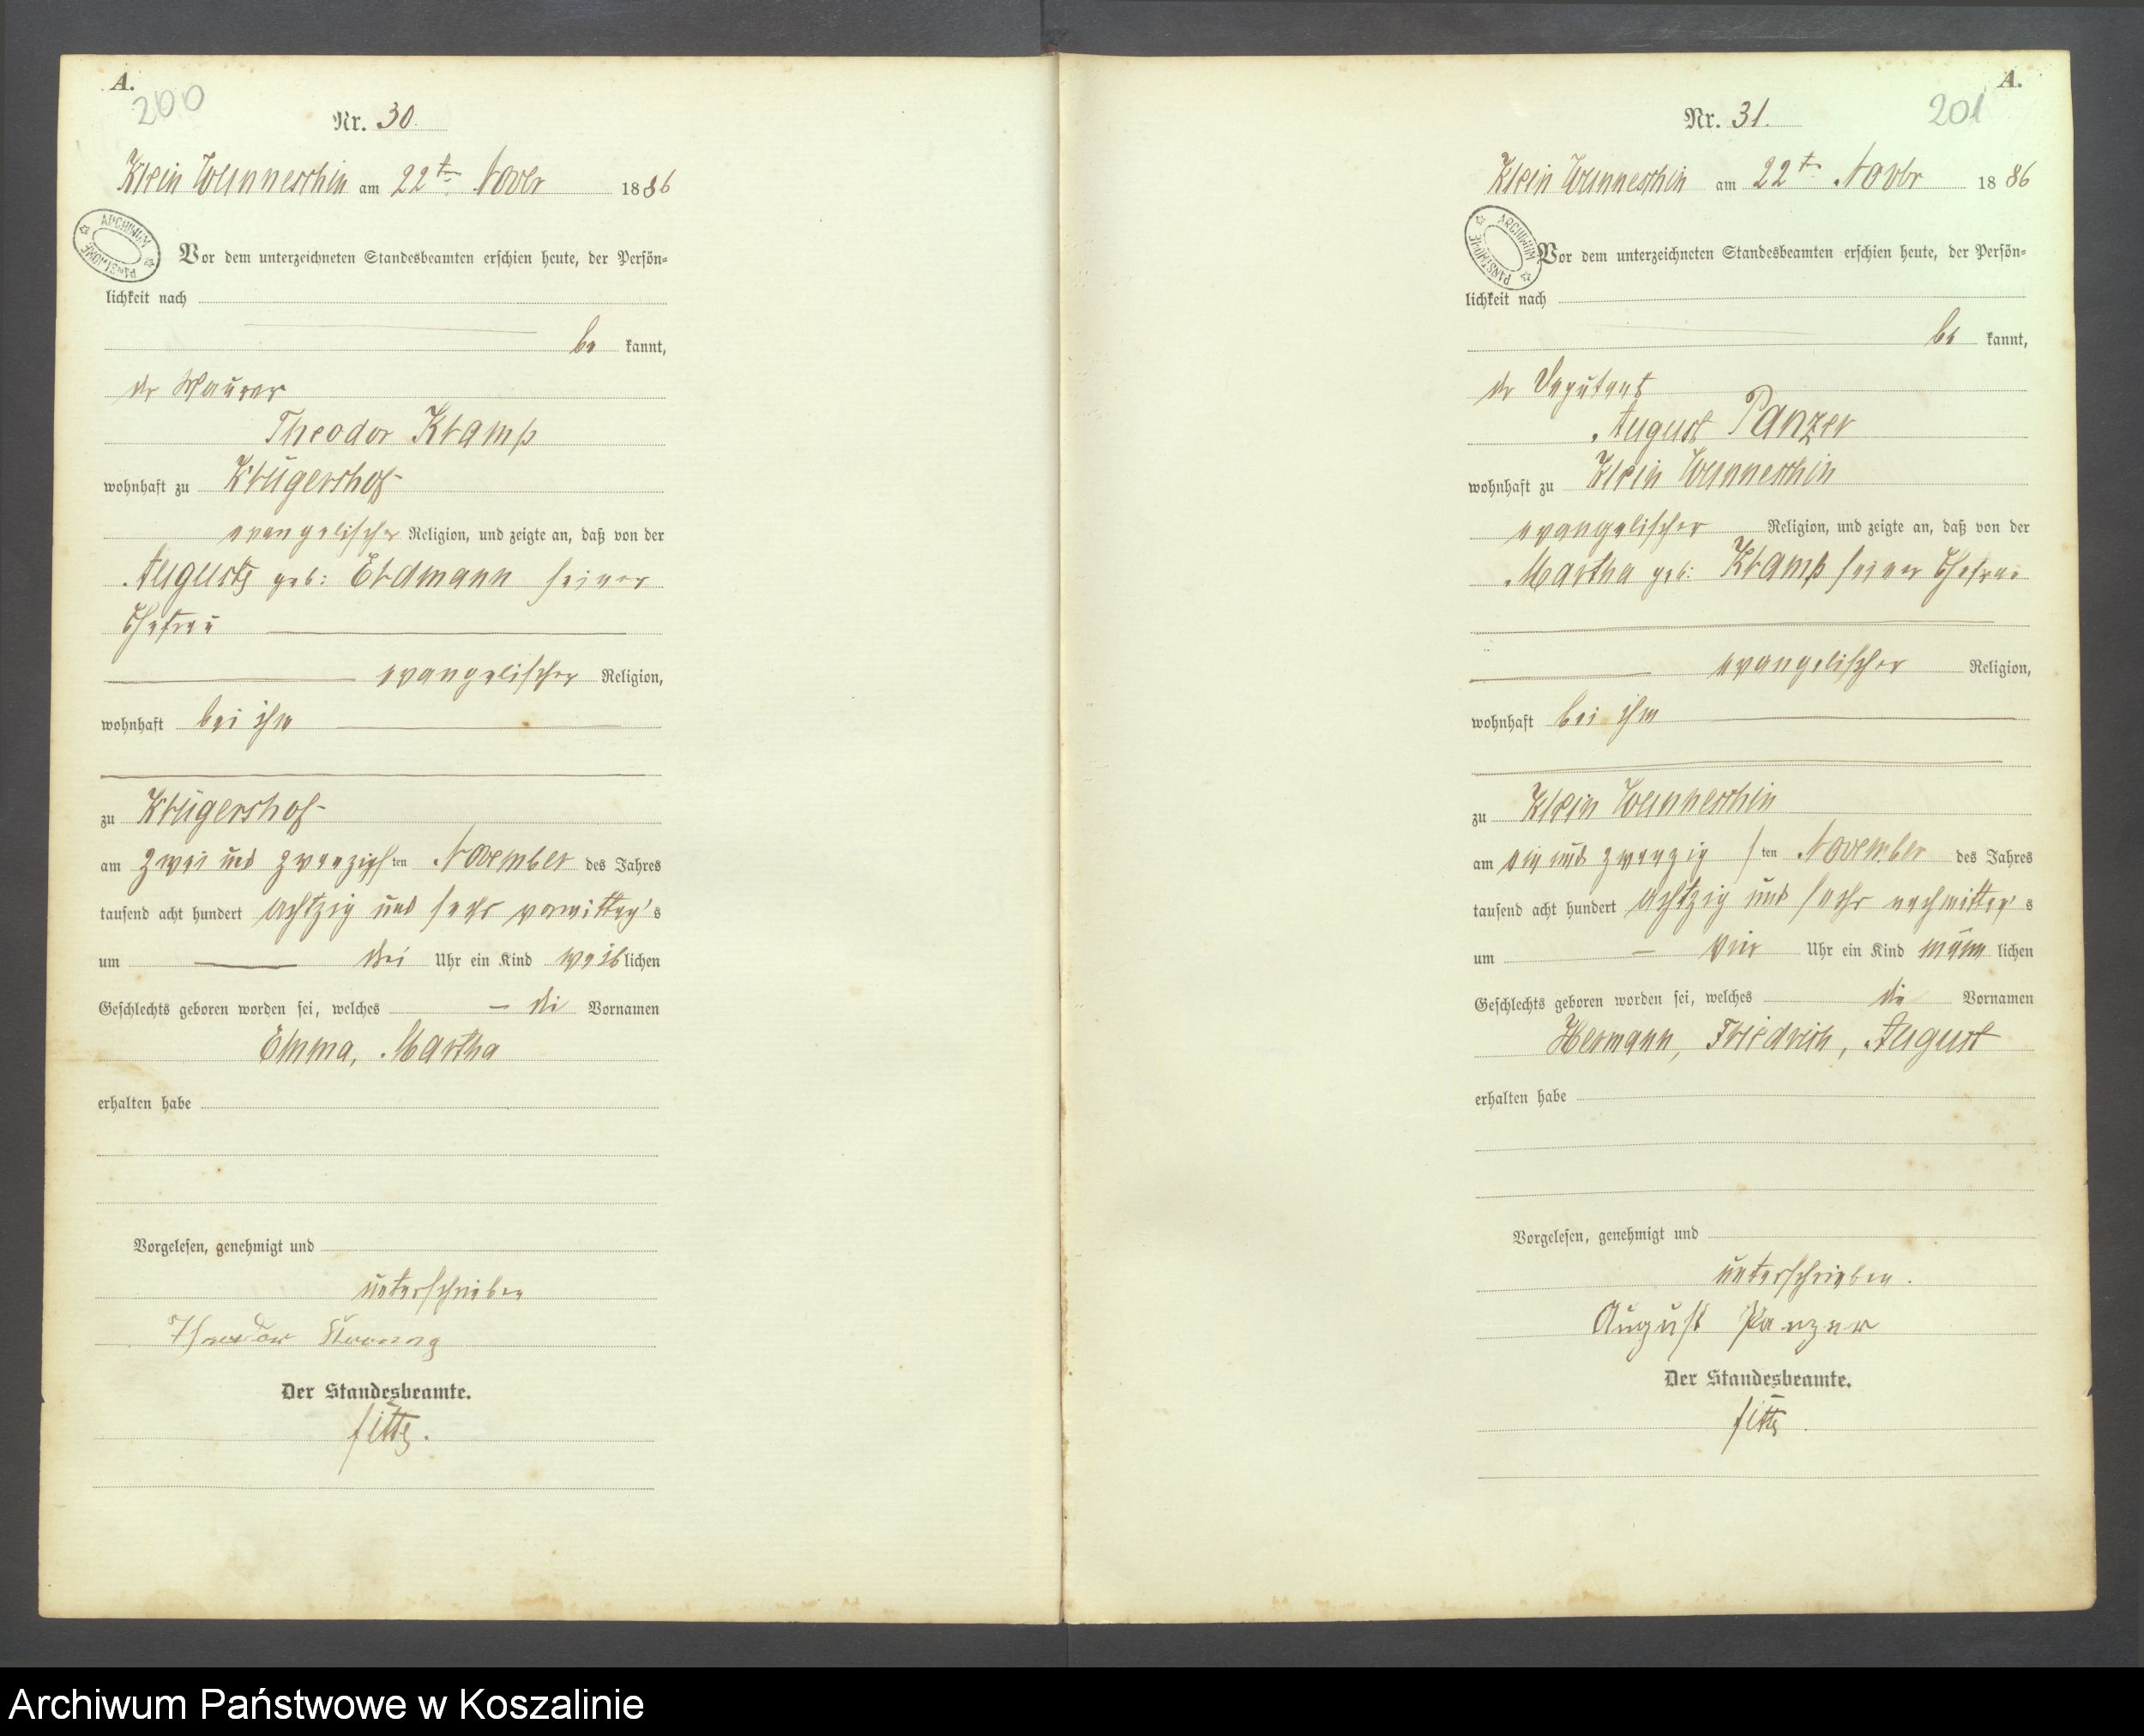 A.
200
Nr. 30.
Klein Wunneschin am 22ten Novbr 1886
ARCHIWUM PAŃSTWOWE
Vor dem unterzeichneten Standesbeamten erschien heute, der Persön-
lichkeit nach
be kannt,
der Maurer
Theodor Kramp
wohnhaft zu Krügershof
evangelischer Religion, und zeigte an, daß von der
Auguste geb: Erdmann seiner
Ehefrau
evangelischer Religion,
wohnhaft bei ihm
zu Krügershof
am zwei und zwanzigsten November des Jahres
tausend acht hundert achtzig und sechs vormittag's
um drei Uhr ein Kind weiblichen
Geschlechts geboren worden sei, welches die Vornamen
Emma, Martha
erhalten habe
Vorgelesen, genehmigt und
unterschrieben
Theodor Kramp
Der Standesbeamte.
A.
201
Nr. 31.
Klein Wunneschin am 22t Novbr 1886
ARCHIWUM PAŃSTWOWE
Vor dem unterzeichneten Standesbeamten erschien heute, der Persön-
lichkeit nach
be kannt,
der Deputant
August Panzer
wohnhaft zu Klein Wunneschin
evangelischer Religion, und zeigte an, daß von der
Martha geb: Kramp seiner Ehefrau
evangelischer Religion,
wohnhaft bei ihm
zu Klein Wunneschin
am ein und zwanzig sten November des Jahres
tausend acht hundert achtzig und sechs nachmittag's
um vier Uhr ein Kind männlichen
Geschlechts geboren worden sei, welches die Vornamen
Hermann, Friedrich, August
erhalten habe
Vorgelesen, genehmigt und
unterschrieben.
August Panzer
Der Standesbeamte.
Archiwum Państwowe w Koszalinie